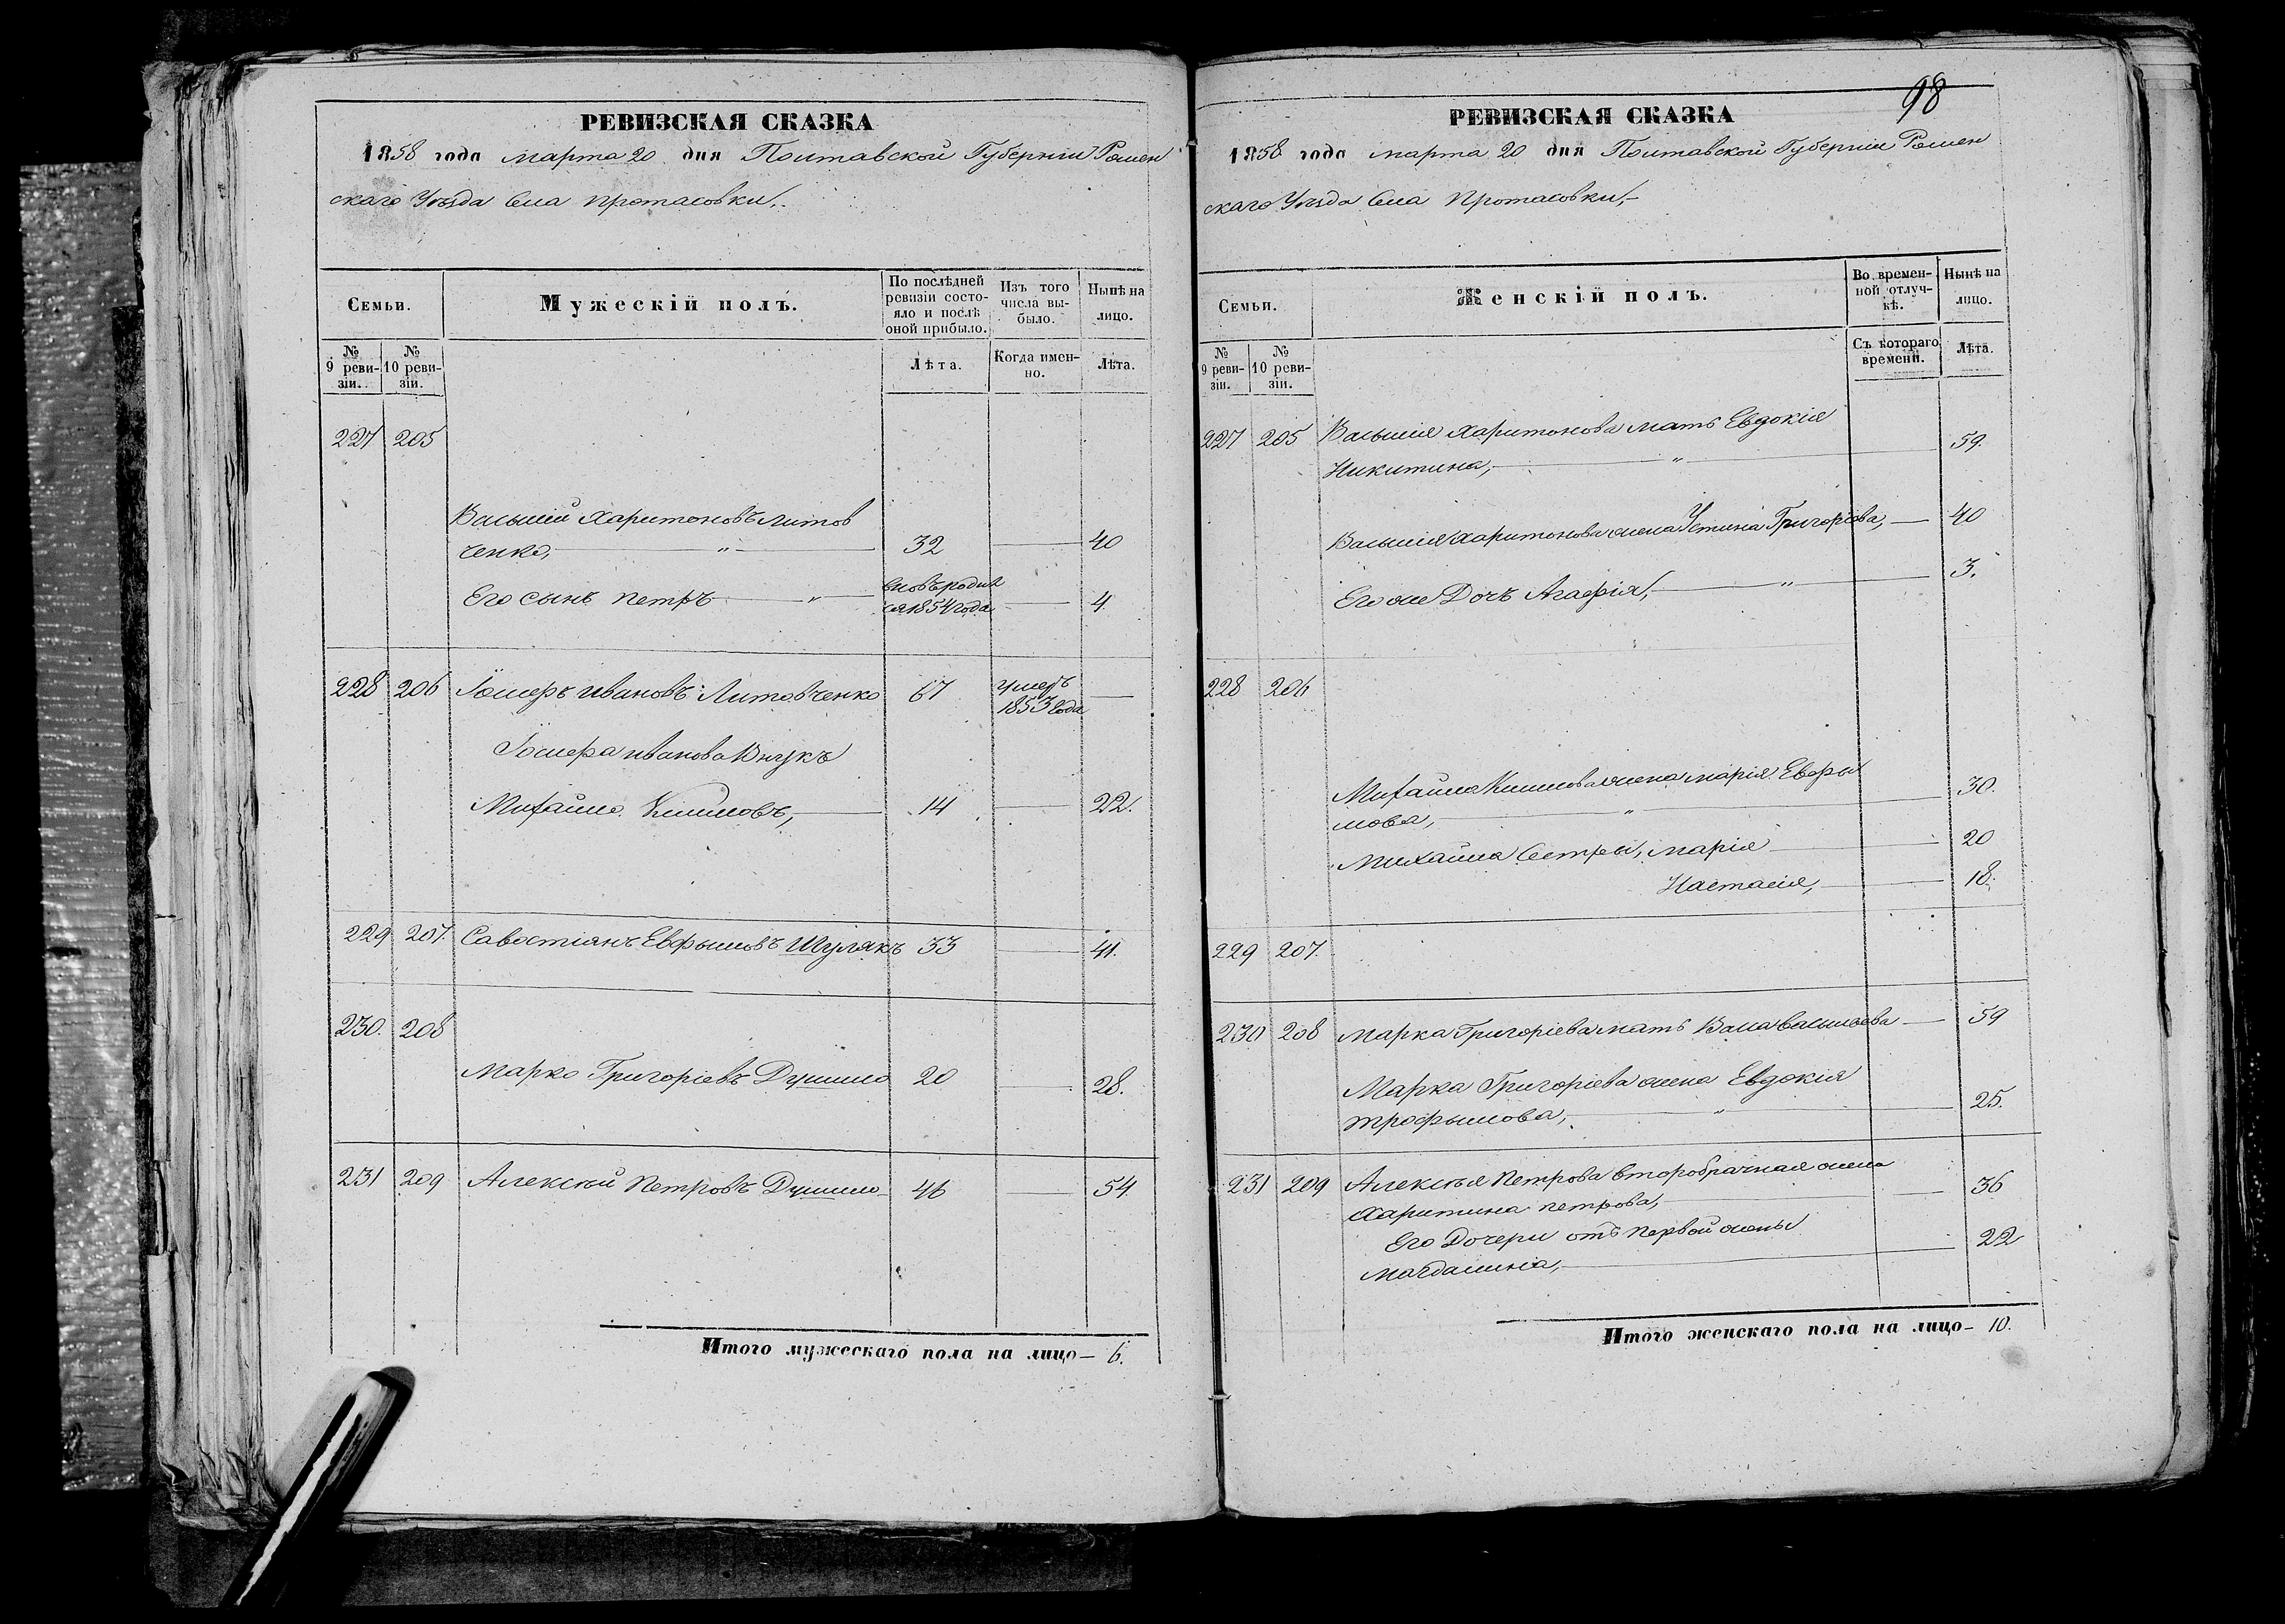 РЕВИЗСКАЯ СКАЗКА
1858 года марта 20 дня Полтавской Губерніи Ромен
скаго Уѣзда Села Протасовки,
Семьи.
Мужескій полъ.
По послѣдней ревизіи состо-
яло и послѣ оной прибыло.
Изъ того числа вы-
было.
Нынѣ на лицо.
№ 9 реви-
зіи.
№ 10 реви-
зіи.
Лѣта.
Когда имен-
но.
Лѣта.
227 205
Василій Харитоновъ Литов
ченко, 32 40
Его сынъ Петръ вновь родил
ся 1854 года 4
228 206 Іосифъ Ивановъ Литовченко 67 умеръ
1853 года
Іосифа Иванова Внукъ
Михайло Климовъ, 14 22.
229 207. Савостіянъ Евфымовъ Шулякъ 33 41.
230. 208
Марко Григоріевъ 20 28.
231 209 Алексѣй Петровъ 46 54
Итого мужескаго пола на лицо 6.
98
РЕВИЗСКАЯ СКАЗКА
1858 года марта 20 дня Полтавской Губерніи Ромен
скаго Уѣзда Села Протасовки,
Семьи.
Женскій полъ.
Во времен-
ной отлуч-
кѣ.
Нынѣ на лицо.
№ 9 реви-
зіи.
№ 10 реви-
зіи.
Съ котораго времени.
Лѣта.
227 205 Василія Харитонова мать Евдокія
Никитина, 59.
Василія Харитонова жена Устина Григоріева, 40
Его же Дочь Агафія, 3.
228 206
Михайла Климова жена Марія Евфы
мова, 30.
Михайла Сестры, Марія 20
Настасія, 18.
229 207.
230 208 Марка Григоріева мать Васильева 59
Марка Григоріева жена Евдокія
Трофымова, 25.
231 209 Алексѣя Петрова второбрачная жена
Харитина Петрова, 36
Его Дочери отъ первой жены
22
Итого женскаго пола на лицо 10.